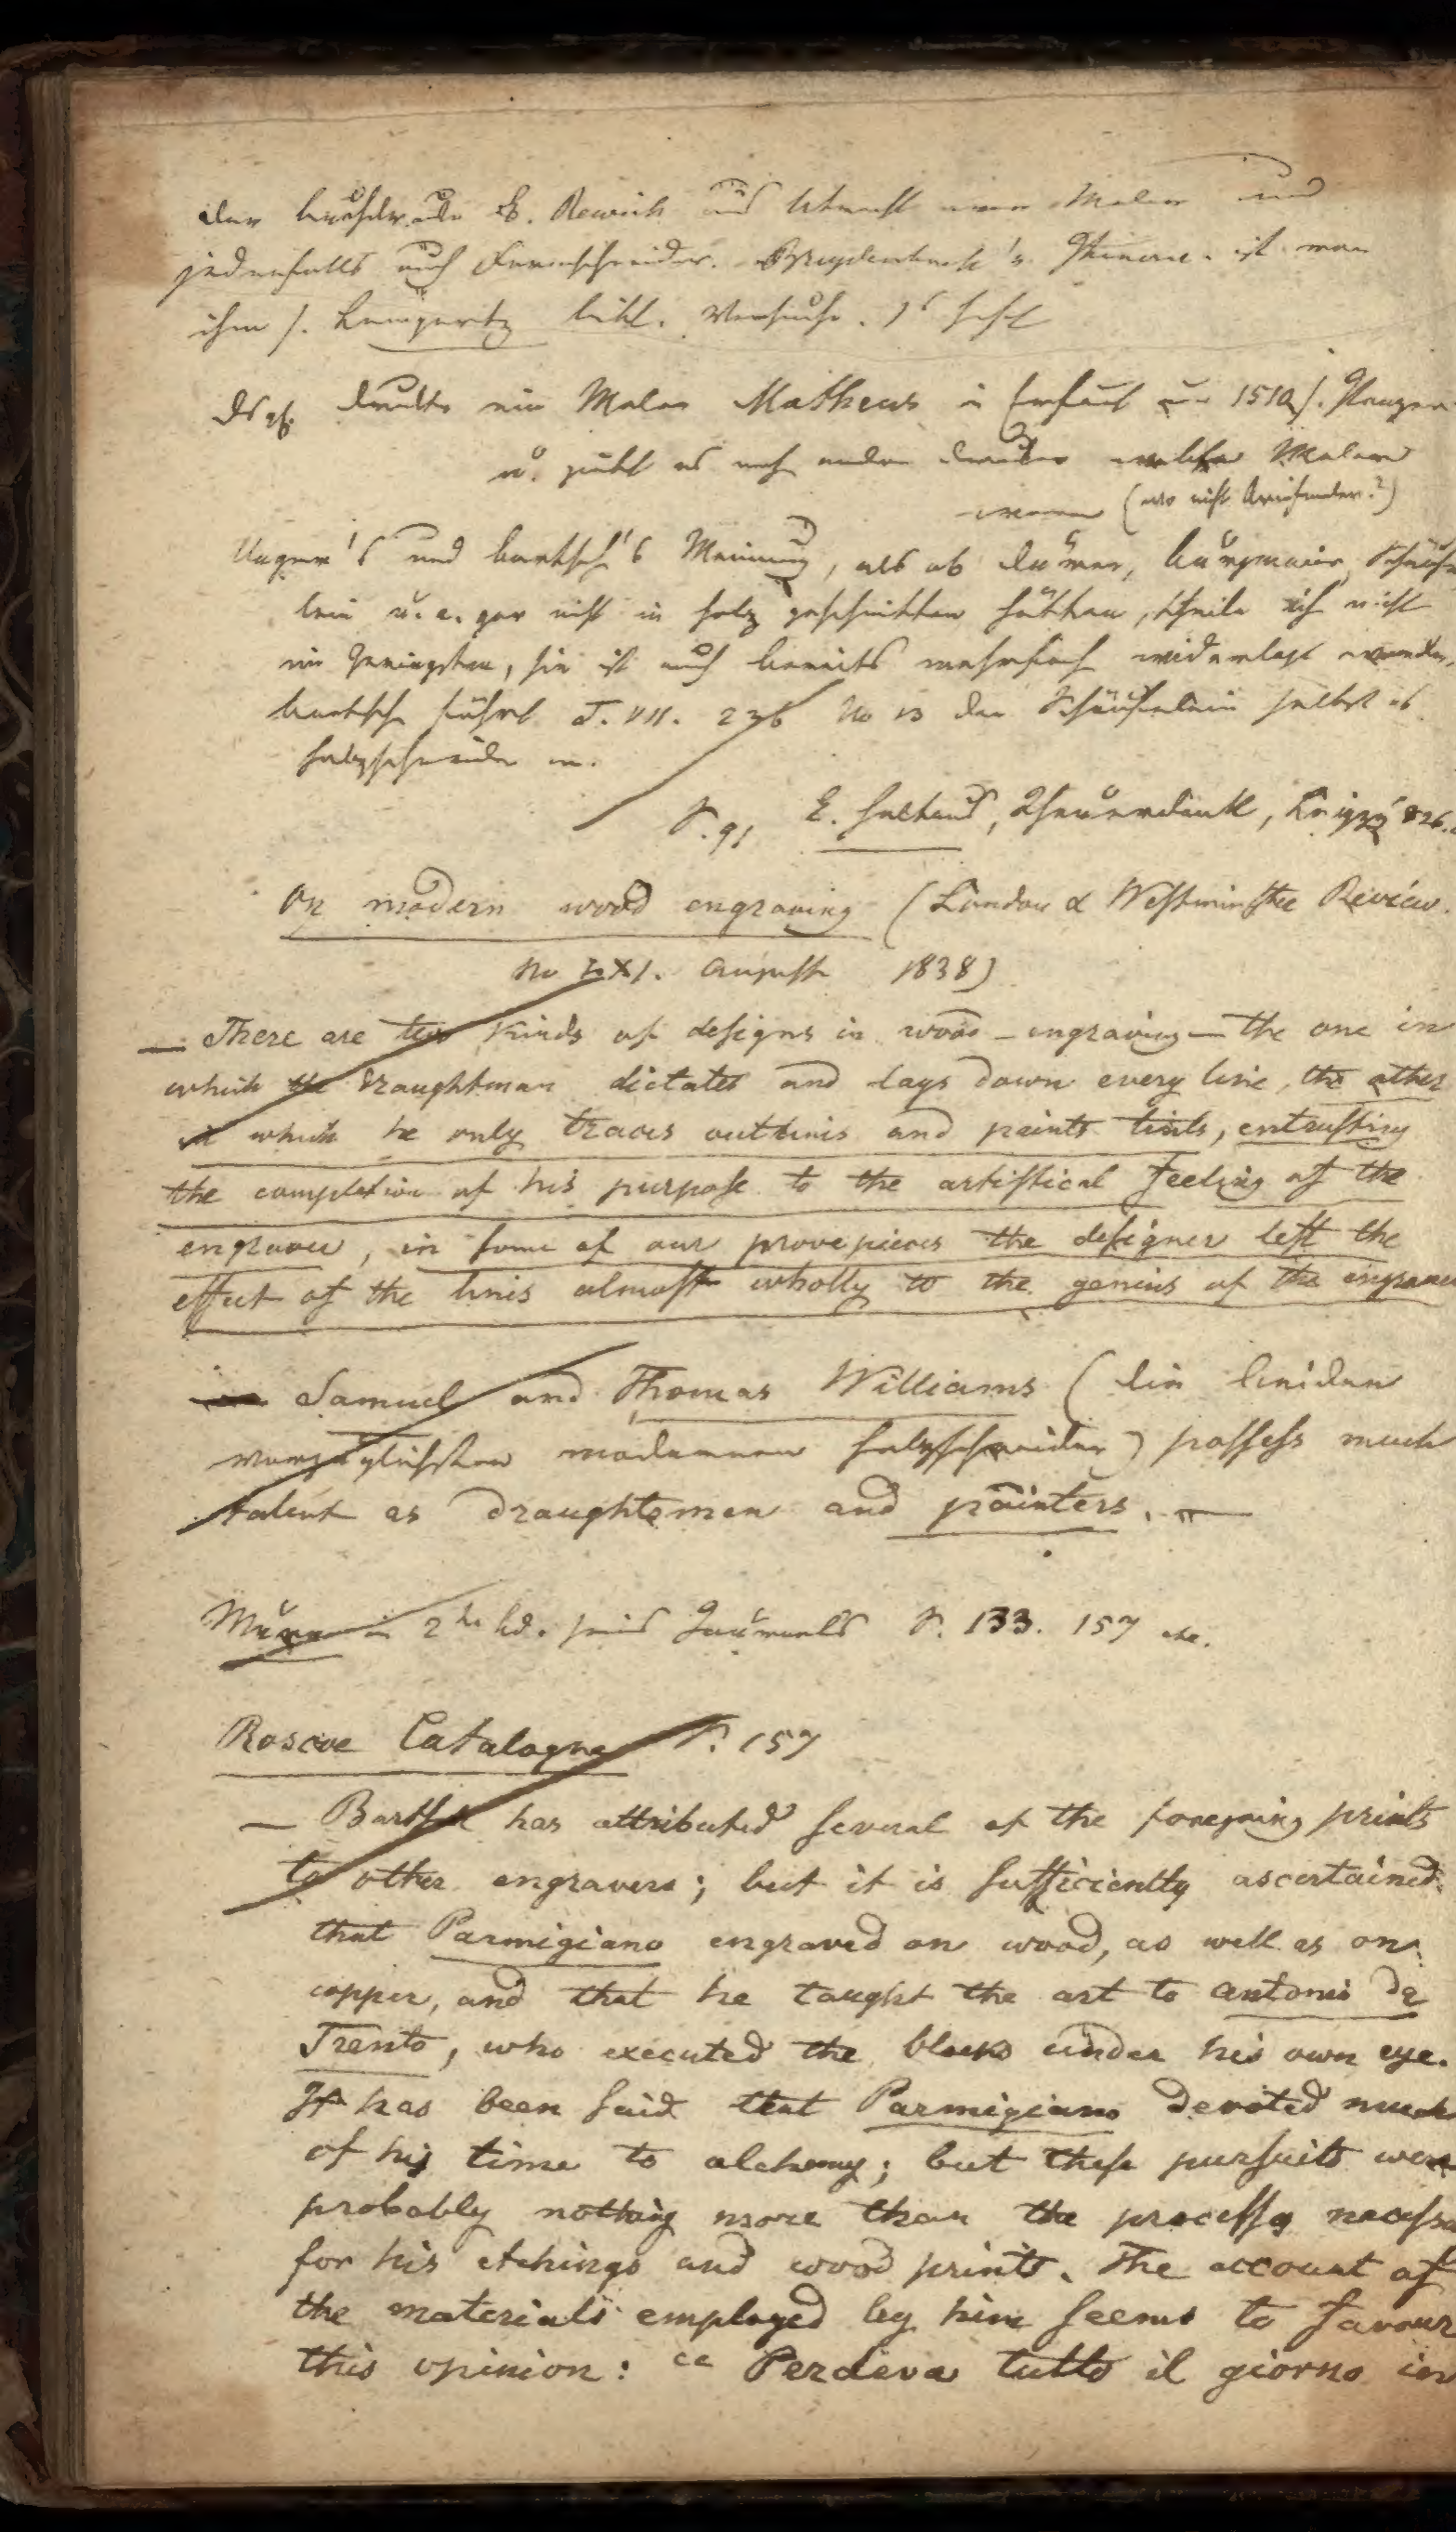 der Buchdrucker E. Rewich aus Utrecht war Maler und
jedenfalls auch Formschneider. Breydenbach's Itinerar. ist von
ihm s. Lempertz bibl. Versuche. 1s Heft
druckte ein Maler Matheus in Erfurt um 1510 s. Panzer
u. giebt es noch andere Drucker welche Maler
waren (wo nicht Briefmaler?)
Unger's und Bartsch's Meinung, als ob Dürer, Burgmaier, Schäufe
lein u. a. gar nicht in Holz geschnitten hätten, theile ich nicht
im Geringsten, sie ist auch bereits mehrfach widerlegt worden,
Bartsch führt T. VII. 236 No 13 den Schäufelein selbst als
Holzschneider an.
S. 91 E. Haltaus, Theuerdank, Leipzig 826.
On modern wood engraving (London & Westminster Review.
No LXI. August 1838)
— There are two kinds of designs in wood-engraving — the one in
which the draughtman dictates and lays down every line, the other
in which he only traces outlines and paints tints, entrusting
the completion of his purpose to the artistical feeling of the
engraver, in some of our prove pieces the designer left the
effect of the lines almost wholly to the genius of the engraver
Samuel and Thomas Williams (die beiden
vorzüglichsten modernen Holzschneider) possess much
talent as draughtsmen and painters. —
Murr in 2ten Bd. seines Journals S. 133. 157 etc.
Roscoe Catalogue S. 157
— Bartsch has attributed several of the foregoing prints
to other engravers; but it is sufficiently ascertained
that Parmigiano engraved on wood, as well as on
copper, and that he taught the art to Antonio da
Trento, who executed the blocks under his own eye.
It has been said that Parmigiano devoted much
of his time to alchemy; but these pursuits were
probably nothing more than the process necessa
for his etchings and wood prints. The account of
the materials employed by him seems to favour
this opinion: "Perdeva tutto il giorno in